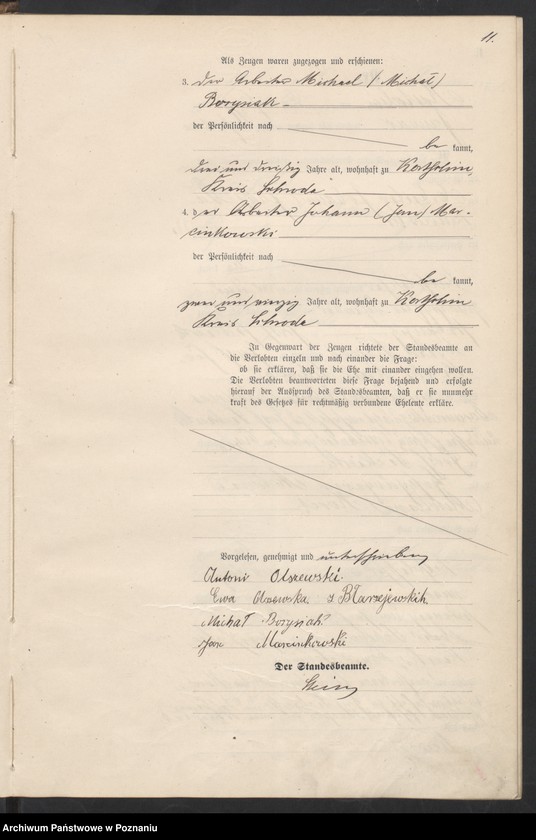 11.
Als Zeugen waren zugezogen und erschienen:
3. der Arbeiter Michael (Michał)
Borysiak
der Persönlichkeit nach
be kannt,
drei und dreißig Jahre alt, wohnhaft zu
Kreis Schroda
4. der Arbeiter Johann (Jan) Mar-
cinkowski
der Persönlichkeit nach
be kannt,
zwei und vierzig Jahre alt, wohnhaft zu
Kreis Schroda
In Gegenwart der Zeugen richtete der Standesbeamte an
die Verlobten einzeln und nach einander die Frage:
ob sie erklären, daß sie die Ehe mit einander eingehen wollen.
Die Verlobten beantworteten diese Frage bejahend und erfolgte
hierauf der Ausspruch des Standesbeamten, daß er sie nunmehr
kraft des Gesetzes für rechtmäßig verbundene Eheleute erkläre.
Vorgelesen, genehmigt und unterschrieben
Antoni Olszewski
Ewa Olszewska z Błarzejewskih
Michał Borysiak
Jan Marcinkowski
Der Standesbeamte.
Archiwum Państwowe w Poznaniu